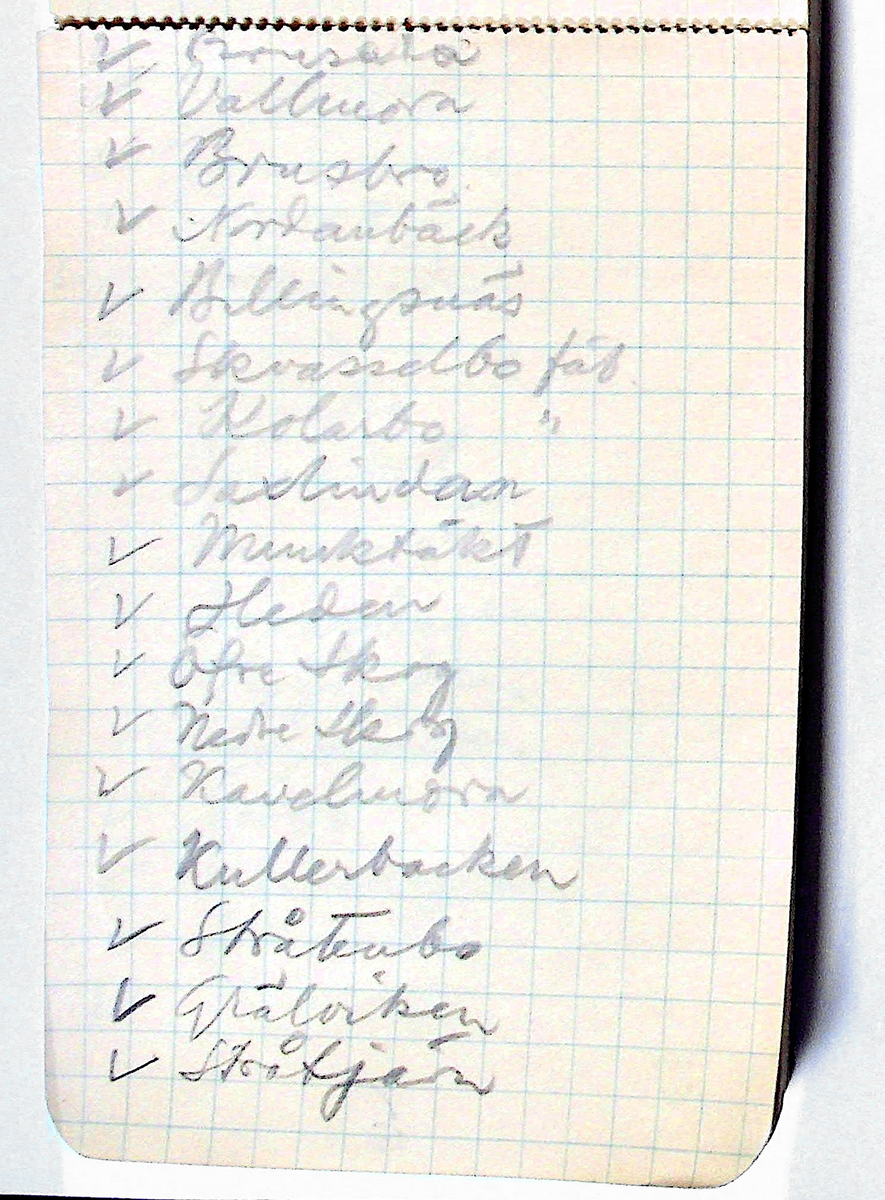 ✓ Vallmora
✓ Brusbro
✓ Nordanbäck
✓ Billingsnäs
✓ Skvasselbo fäb.
✓ Kolarbo "
✓ Saxlindan
✓ Munktäkt
✓ Heden
✓ Öfre Skog
✓ Nedre Skog
✓ Kavelmora
✓ Kullerbacken
✓ Stråtenbo
✓ Grälviken
✓ Stråtjärn